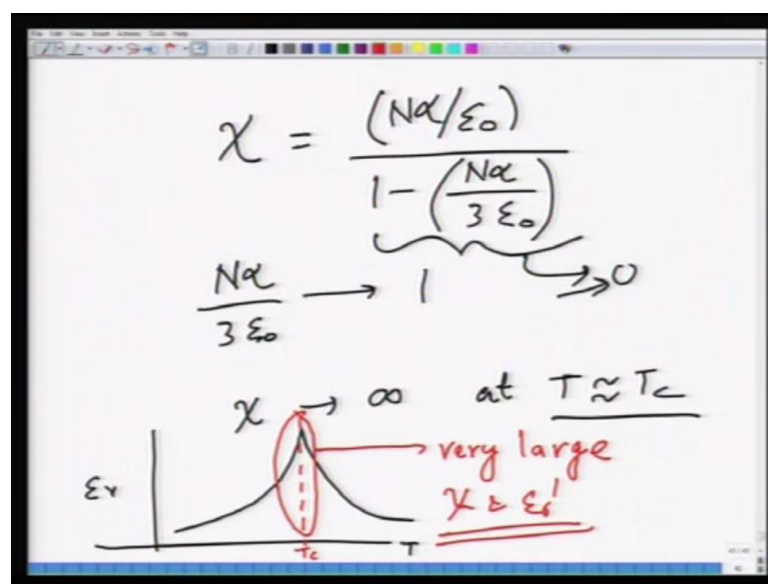 File Edit View Insert Actions Tools Help
χ = (Nα/ε₀)
1 - (Nα
3 ε₀)
Nα → 1 → 0
3 ε₀
χ → ∞ at T ≈ Tc
very large
εr
χ & εr'
Tc T